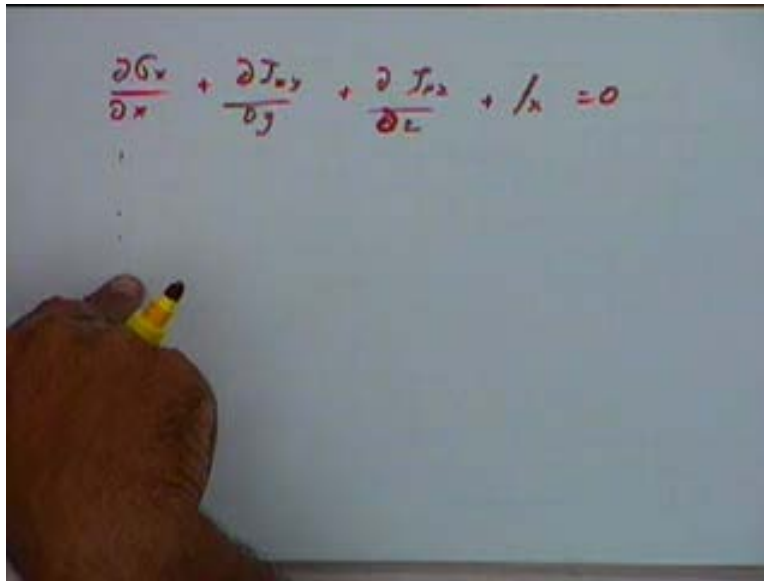 ∂σx/∂x + ∂τxy/∂y + ∂τxz/∂z + fx = 0